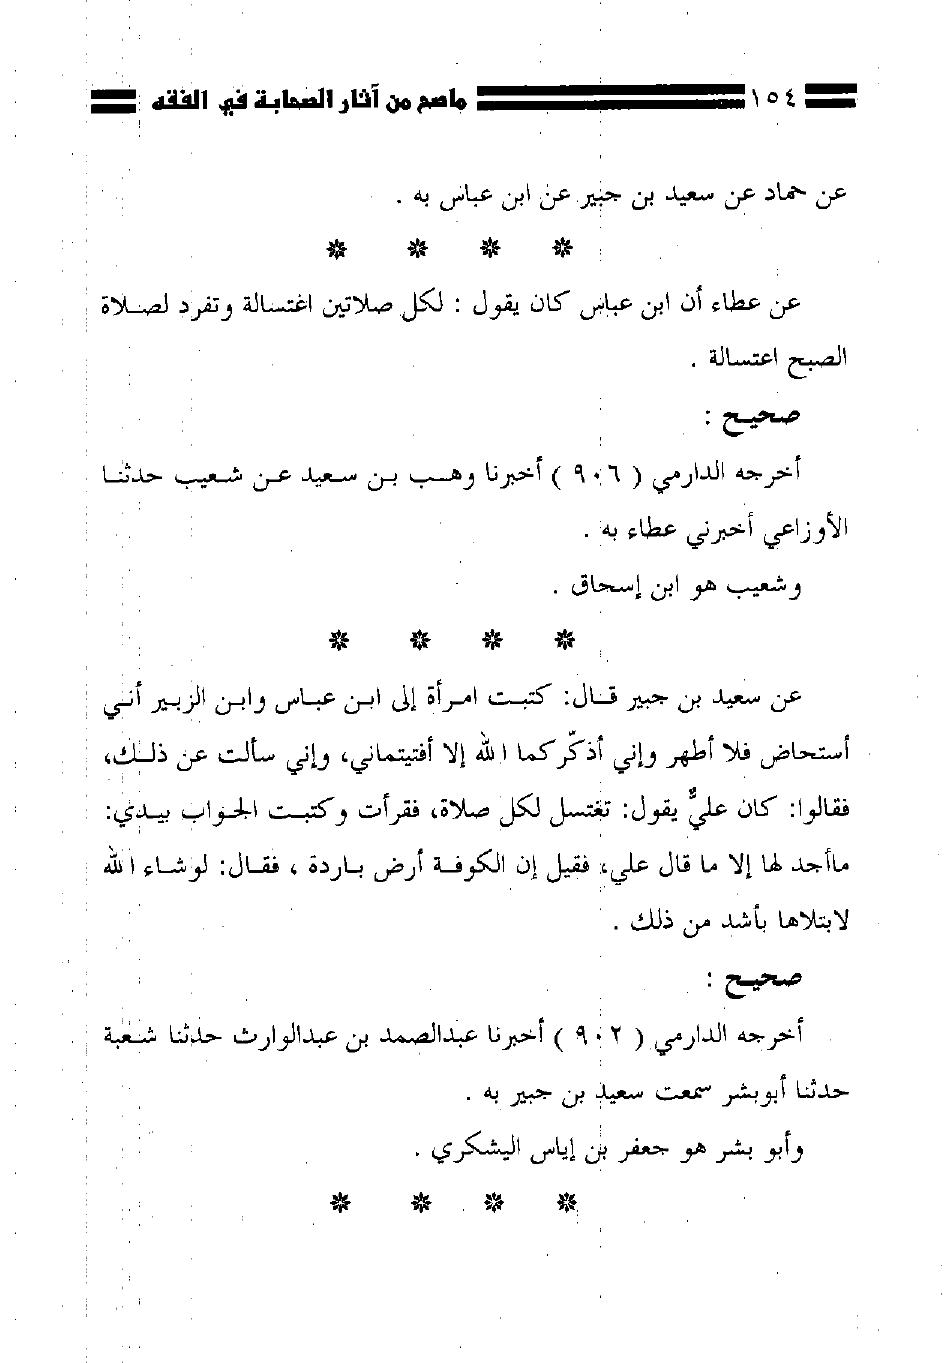 ١٥٤ ماصح من آثار الصحابة في الفقه
عن حماد عن سعيد بن جبير عن ابن عباس به .
عن عطاء أن ابن عباس كان يقول : لكل صلاتين اغتسالة وتفرد لصلاة
الصبح اعتسالة .
صحيح :
أخرجه الدارمي ( ٩٠٦ ) أخبرنا وهب بن سعيد عن شعيب حدثنا
الأوزاعي أخبرني عطاء به .
وشعيب هو ابن إسحاق .
عن سعيد بن جبير قال: كتبت امرأة إلى ابن عباس وابن الزبير أني
أستحاض فلا أطهر وإني أذكّركما الله إلا أفتيتماني، وإني سألت عن ذلك،
فقالوا: كان عليٌّ يقول: تغتسل لكل صلاة، فقرأت وكتبت الجواب بيدي:
ماأجد لها إلا ما قال علي، فقيل إن الكوفة أرض باردة ، فقال: لوشاء الله
لابتلاها بأشد من ذلك .
صحيح :
أخرجه الدارمي ( ٩٠٢ ) أخبرنا عبدالصمد بن عبدالوارث حدثنا شعبة
حدثنا أبوبشر سمعت سعيد بن جبير به .
وأبو بشر هو جعفر بن إياس اليشكري .